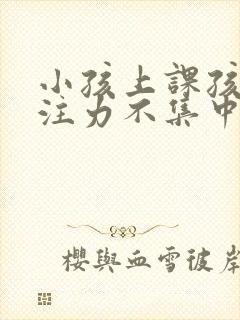 小孩上課孩
注力不集中
櫻與血雪彼岸